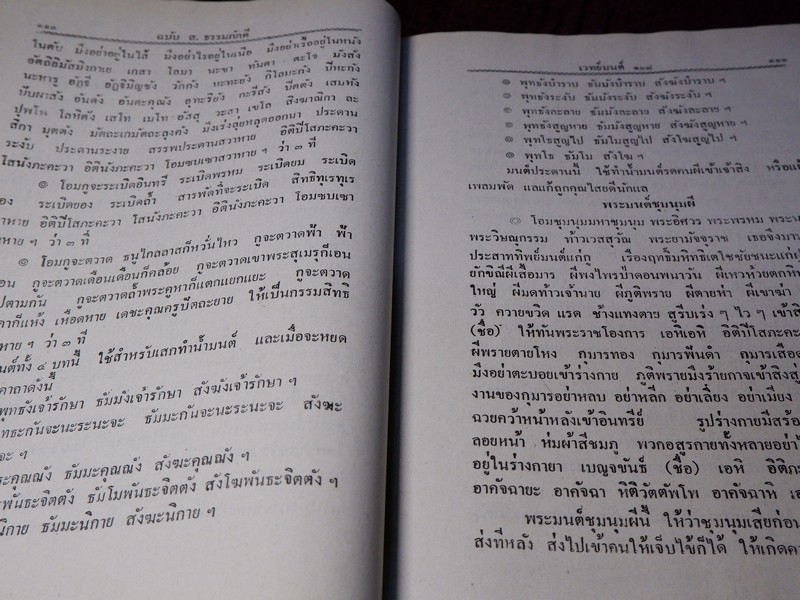 ๑๑๐ ฉบับ ส. ธรรมภักดี
ในตับ มึงอย่าอยู่ในไส้ มึงอย่าไรอยู่ในเนื้อ มึงอย่าเรื้ออยู่ในหนัง
อัตถิอิมัสมิงกาเย เกสา โลมา นะขา ทันตา ตะโจ มังสัง
นะหารู อัฏฐี อัฏฐิมิญชัง วักกัง หะทะยัง กิโลมะกัง ปิหะกัง
ปัปผาสัง อันตัง อันตะคุณัง อุทะริยัง กะรีสัง ปิตตัง เสมหัง
ปุพโพ โลหิตัง เสโท เมโท อัสสุ วะสา เขโล สิงฆาณิกา ละ
สิกา มุตตัง มัตถะเกมัตถะลุงคัง มึงเร่งลู่ยหลุดออกมา ประดาน
ระงับ ประดานระงาย สรรพประดานสวาหาย อิติปิโสภะคะวา
โสนังภะคะวา อิตินังภะคะวา โอมชบเชาสวาหาย ฯ ว่า ๓ ที
๏ โอมกูจะระเบิดอินทรี ระเบิดพรหม ระเบิดยม ระเบิด
ของ ระเบิดยอง ระเบิดถ้ำ สารพัดที่จะระเบิด สิทธิทุเรทุเร
หาย อิติปิโสภะคะวา โสนังภะคะวา อิตินังภะคะวา โอมชบเชา
หาย ฯ ว่า ๓ ที
๏ โอมกูจะตวาด ธนูไกลลาสก็หวั่นไหว กูจะตวาดฟ้า ฟ้า
อน กูจะตวาดเดือนเดือนก็คล้อย กูจะตวาดเขาพระสุเมรุก็เอน
ปตามกัน กูจะตวาดถ้ำพระคูหาก็แตกแยกแยะ กูจะตวาด
คาก็แห้ง เหือดหาย เดชะคุณครูปัตถะยาย ให้เป็นกรรมสิทธิ
หาย ฯ ว่า ๓ ที
นต์ทั้ง ๔ บทนี้ ใช้สำหรับเสกทำน้ำมนต์ และเมื่อจะหยด
คาถาดังนี้
พุทธังเจ้ารักษา ธัมมังเจ้ารักษา สังฆังเจ้ารักษา ฯ
ทธะกันจะนะระนะจะ ธัมมะกันจะนะระนะจะ สังฆะ
จะ ฯ
ะคุณณัง ธัมมะคุณณัง สังฆะคุณณัง ฯ
พันธะจิตตัง ธัมโมพันธะจิตตัง สังโฆพันธะจิตตัง ฯ
นิกาย ธัมมะนิกาย สังฆะนิกาย ฯ
เวทย์มนต์ ๑๐๘ ๑๑๑
๏ พุทธังบำราบ ธัมมังบำราบ สังฆังบำราบ ฯ
๏ พุทธังระงับ ธัมมังระงับ สังฆังระงับ ฯ
๏ พุทธังละลาย ธัมมังละลาย สังฆังละลาย ฯ
๏ พุทธังสูญหาย ธัมมังสูญหาย สังฆังสูญหาย ฯ
๏ พุทโธสูญไป ธัมโมสูญไป สังโฆสูญไป ฯ
๏ พุทโธ ธัมโม สังโฆ ฯ
มนต์ประดานนี้ ใช้ทำน้ำมนต์รดคนผีเข้าเจ้าสิง หรือแม้
เพลมพัด แลแก้ถูกคุณไสยดีนักแล
พระมนต์ชุมนุมผี
๏ โอมชุมนุมมหาชุมนุม พระอิศวร พระพรหม พระนา
พระวิษณุกรรม ท้าวเวสสุวัณ พระยามัจจุราช เธอจึงมา
ประสาทศิพย์มนต์แก่กู เรืองฤทธิ์มหิทธิเตโชชัยชนะแก่
ยักขิณีผีเสื้อมาร ผีพงไพรป่าดอนพนาวัน ผีเหวห้วยตกทิ
ใหญ่ ผีมดท้าวเจ้านาย ผีภูติพราย ผีตายห่า ผีเขาฆ่า
วัว ควายขวิด แรด ช้างแทงตาย สูรีบเร่ง ๆ ไว ๆ เข้าสิ
(ชื่อ) ให้ทันพระราชโองการ เอหิเอหิ อิติปิโสภะคะ
ผีพรายตายโหง กุมารทอง กุมารฟันดำ กุมารเสือ
มึงอย่าตะบอยเข้าร่างกาย ภูติพรายมึงร้ายกาจเข้าสิงสู่
งานของกุมารอย่าหลบ อย่าหลีก อย่าเลี่ยง อย่าเมียง
ฉวยคว้าหน้าหลังเข้าอินทรีย์ รูปร่างกายมีสร้อ
ลอยหน้า ห่มผ้าสีชมภู พวกอสูรกายทั้งหลายอย่า
อยู่ในร่างกายา เบญจขันธ์ (ชื่อ) เอหิ อิติ
อาคัจฉายะ อาคัจฉา หิติวัตตัพโพ อาคัจฉาหิ เอ
พระมนต์ชุมนุมผีนี้ ให้ว่าชุมนุมเสียก่อน
ส่งที่หลัง ส่งไปเข้าคนให้เจ็บไข้ก็ได้ ให้เกิด